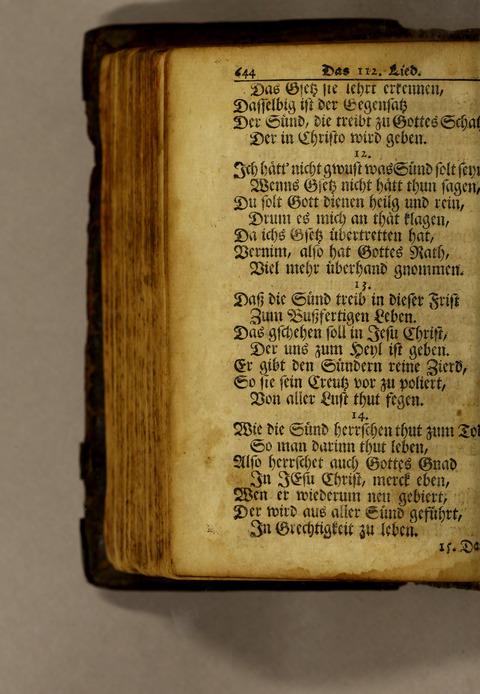 644 Das 112. Lied.
Das Gsetz sie lehrt erkennen,
Dasselbig ist der Gegensatz
Der Sünd, die treibt zu Gottes
Der in Christo wird geben.
12.
Ich hått' nicht gwust was Sünd solt seyn
Wenns Gsetz nicht hått thun sagen,
Du solt Gott dienen heilg und rein,
Drum es mich an thåt klagen,
Da ichs Gsetz übertretten hat,
Vernim, also hat Gottes Rath,
Viel mehr überhand gnommen.
13.
Daß die Sünd treib in dieser Frist
Zum Bußfertigen Leben.
Das gschehen soll in Jesu Christ,
Der uns zum Heyl ist geben.
Er gibt den Sündern reine Zierd,
So sie sein Creutz vor zu poliert,
Von aller Lust thut fegen.
14.
Wie die Sünd herrschen thut zum
So man darinn thut leben,
Also herrschet auch Gottes Gnad
In JEsu Christ, merck eben,
Wen er wiederum neu gebiert,
Der wird aus aller Sünd geführt,
In Grechtigkeit zu leben.
15. Da